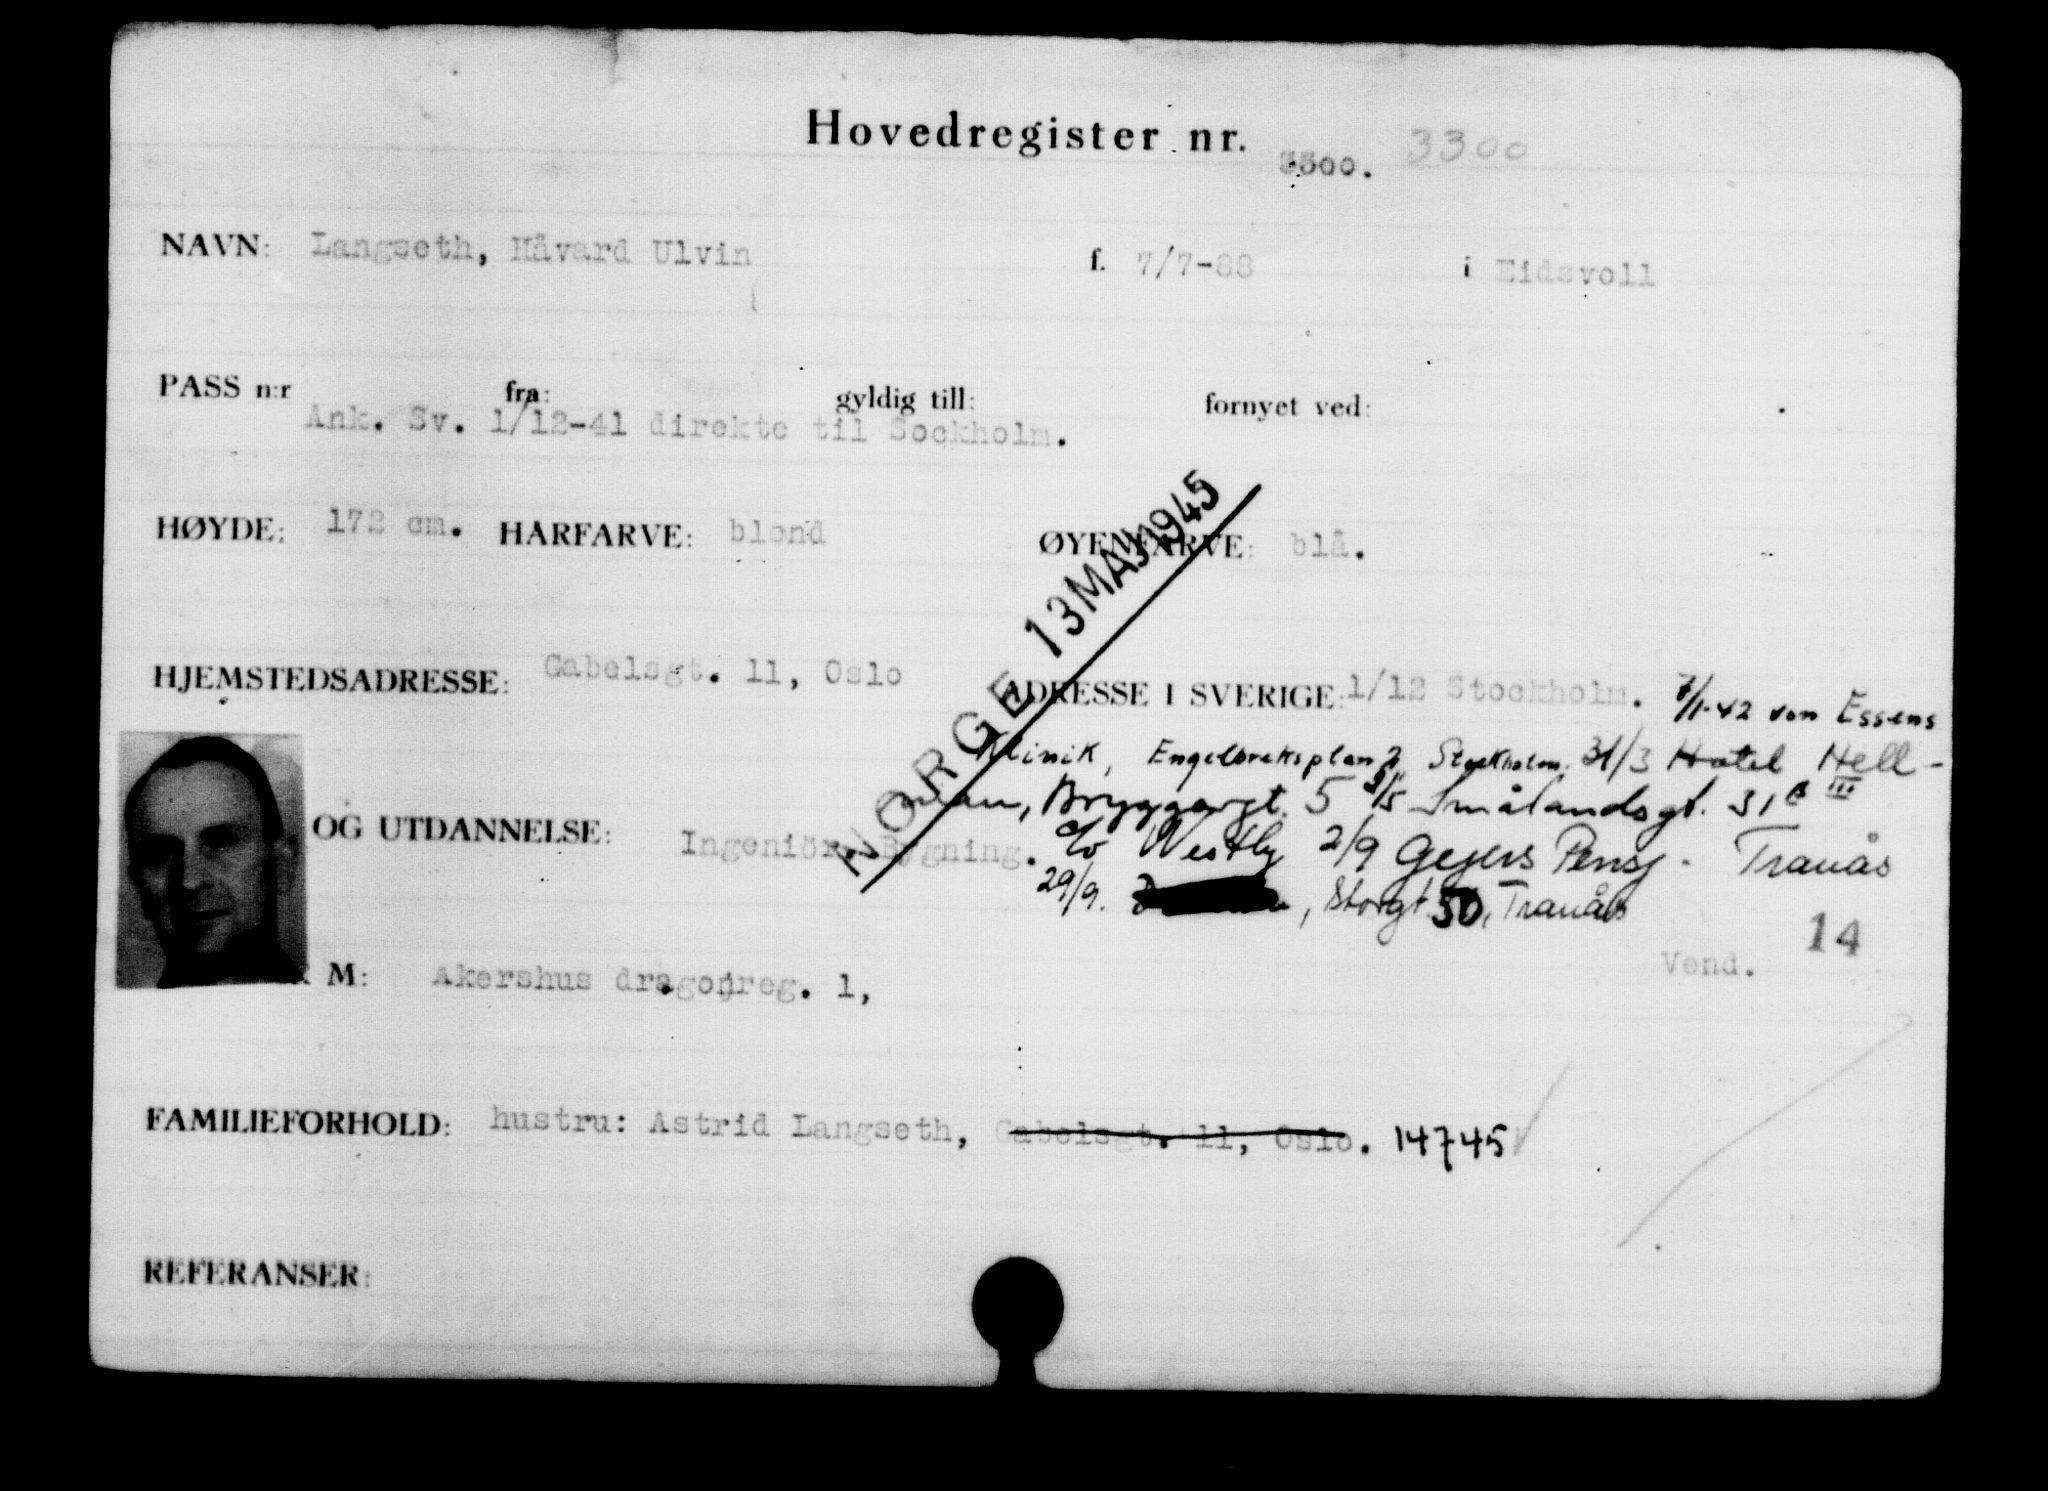 Hovedregister nr. 3300. 3300
NAVN: Langseth, Håvard Ulvin f. 7/7-88 i Eidsvoll
PASS n:r fra: gyldig till: fornyet ved:
Ank. Sv. 1/12-41 direkte til Sockholm.
HØYDE: 172 cm. HARFARVE: blond ØYENFARVE: blå.
NORGE 13 MAJ 1945
HJEMSTEDSADRESSE: Gabelsgt. 11, Oslo ADRESSE I SVERIGE: 1/12 Stockholm. 7/1-42 von Essens
Klinik, Engelbrektsplan 2, Stockholm. 31/3 Hotel Hell-
man, Bryggargt. 5 2/5 Smålandsgt. 31 B III
OG UTDANNELSE: Ingeniör, Bygning. c/o Westby 2/9 Geyers Pensj. Tranås
29/9. , Storgt. 50, Tranås
Vend. 14
R M: Akershus dragonreg. 1,
FAMILIEFORHOLD: hustru: Astrid Langseth, Gabelsgt. 11, Oslo. 14745
REFERANSER: